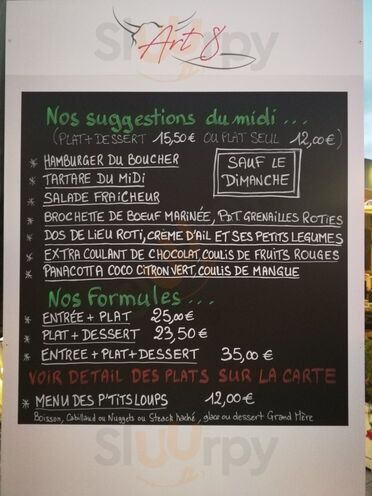 Art 8
Sluurpy
Nos suggestions du midi...
(PLAT+DESSERT 15,50€ OU PLAT SEUL 12,00€)
* HAMBURGER DU BOUCHER
SAUF LE
DIMANCHE
* TARTARE DU MiDi
* SALADE FRAiCHEUR
* BROCHETTE DE BOEUF MARINÉE, PDT GRENAILLES ROTIES
* DOS DE LIEU ROTI, CRÈME D'AIL ET SES PETITS LEGUMES
* EXTRA COULANT DE CHOCOLAT, COULIS DE FRUITS ROUGES
* PANACOTTA COCO CITRON VERT, COULIS DE MANGUE
Nos Formules...
* ENTRÉE + PLAT 25,00€
* PLAT + DESSERT 23,50€
* ENTREE + PLAT + DESSERT 35,00€
VOIR DETAIL DES PLATS SUR LA CARTE
* MENU DES P'TITS LOUPS 12,00€
Boisson, Cabillaud ou Nuggets ou Steack haché, glace ou dessert Grand Mère
Sluurpy